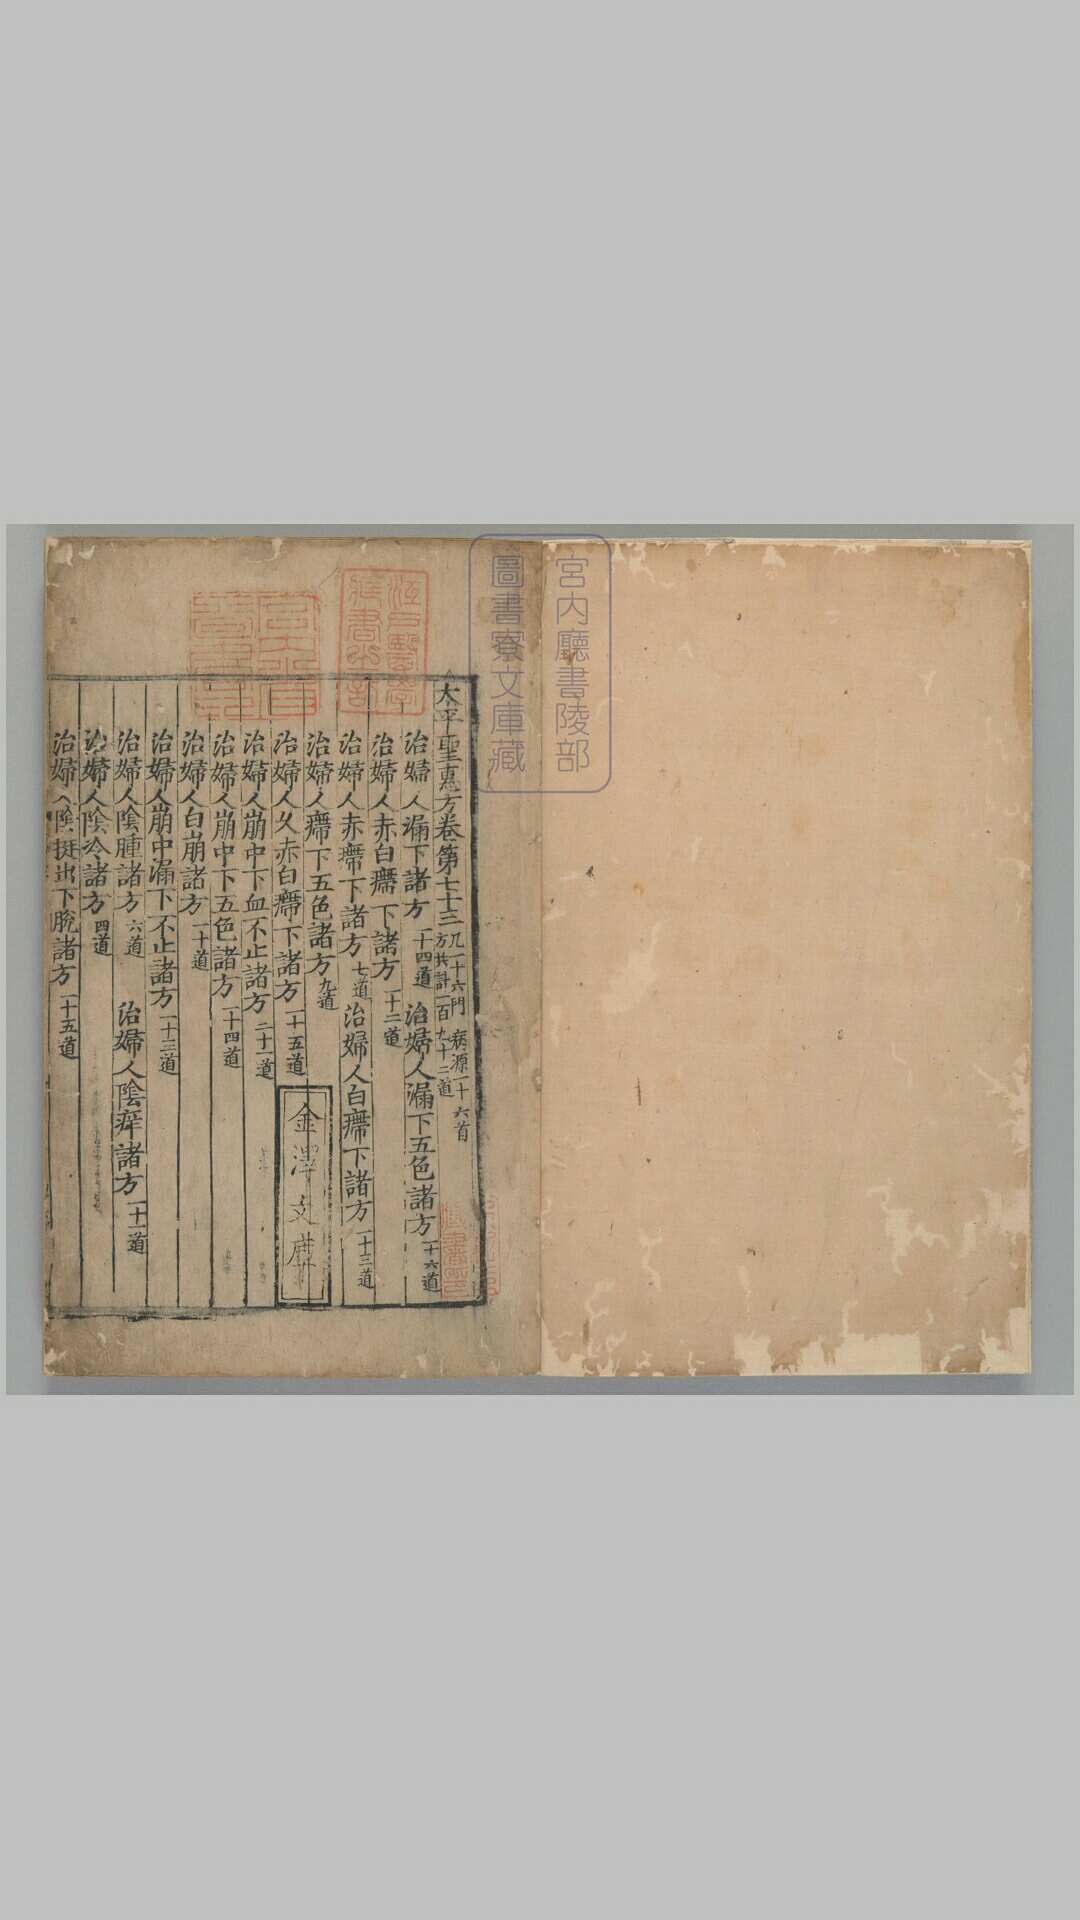 宮内廳書陵部
圖書寮文庫藏
太平聖惠方卷第七十三 凡一十六門 病源一十六首
方共計一百九十二道
治婦人漏下諸方 一十四道 治婦人漏下五色諸方 一十六道
治婦人赤白𤻤下諸方 一十二道
治婦人赤𤻤下諸方 七道 治婦人白𤻤下諸方 一十三道
治婦人𤻤下五色諸方 九道
治婦人久赤白𤻤下諸方 一十五道
治婦人崩中下血不止諸方 二十一道
治婦人崩中下五色諸方 一十四道
治婦人白崩諸方 一十道
治婦人崩中漏下不止諸方 一十三道
治婦人陰腫諸方 六道 治婦人陰痒諸方 一十一道
治婦人陰冷諸方 四道
治婦人陰挺出下脫諸方 一十五道
江戸醫學
藏書之記
金澤文庫